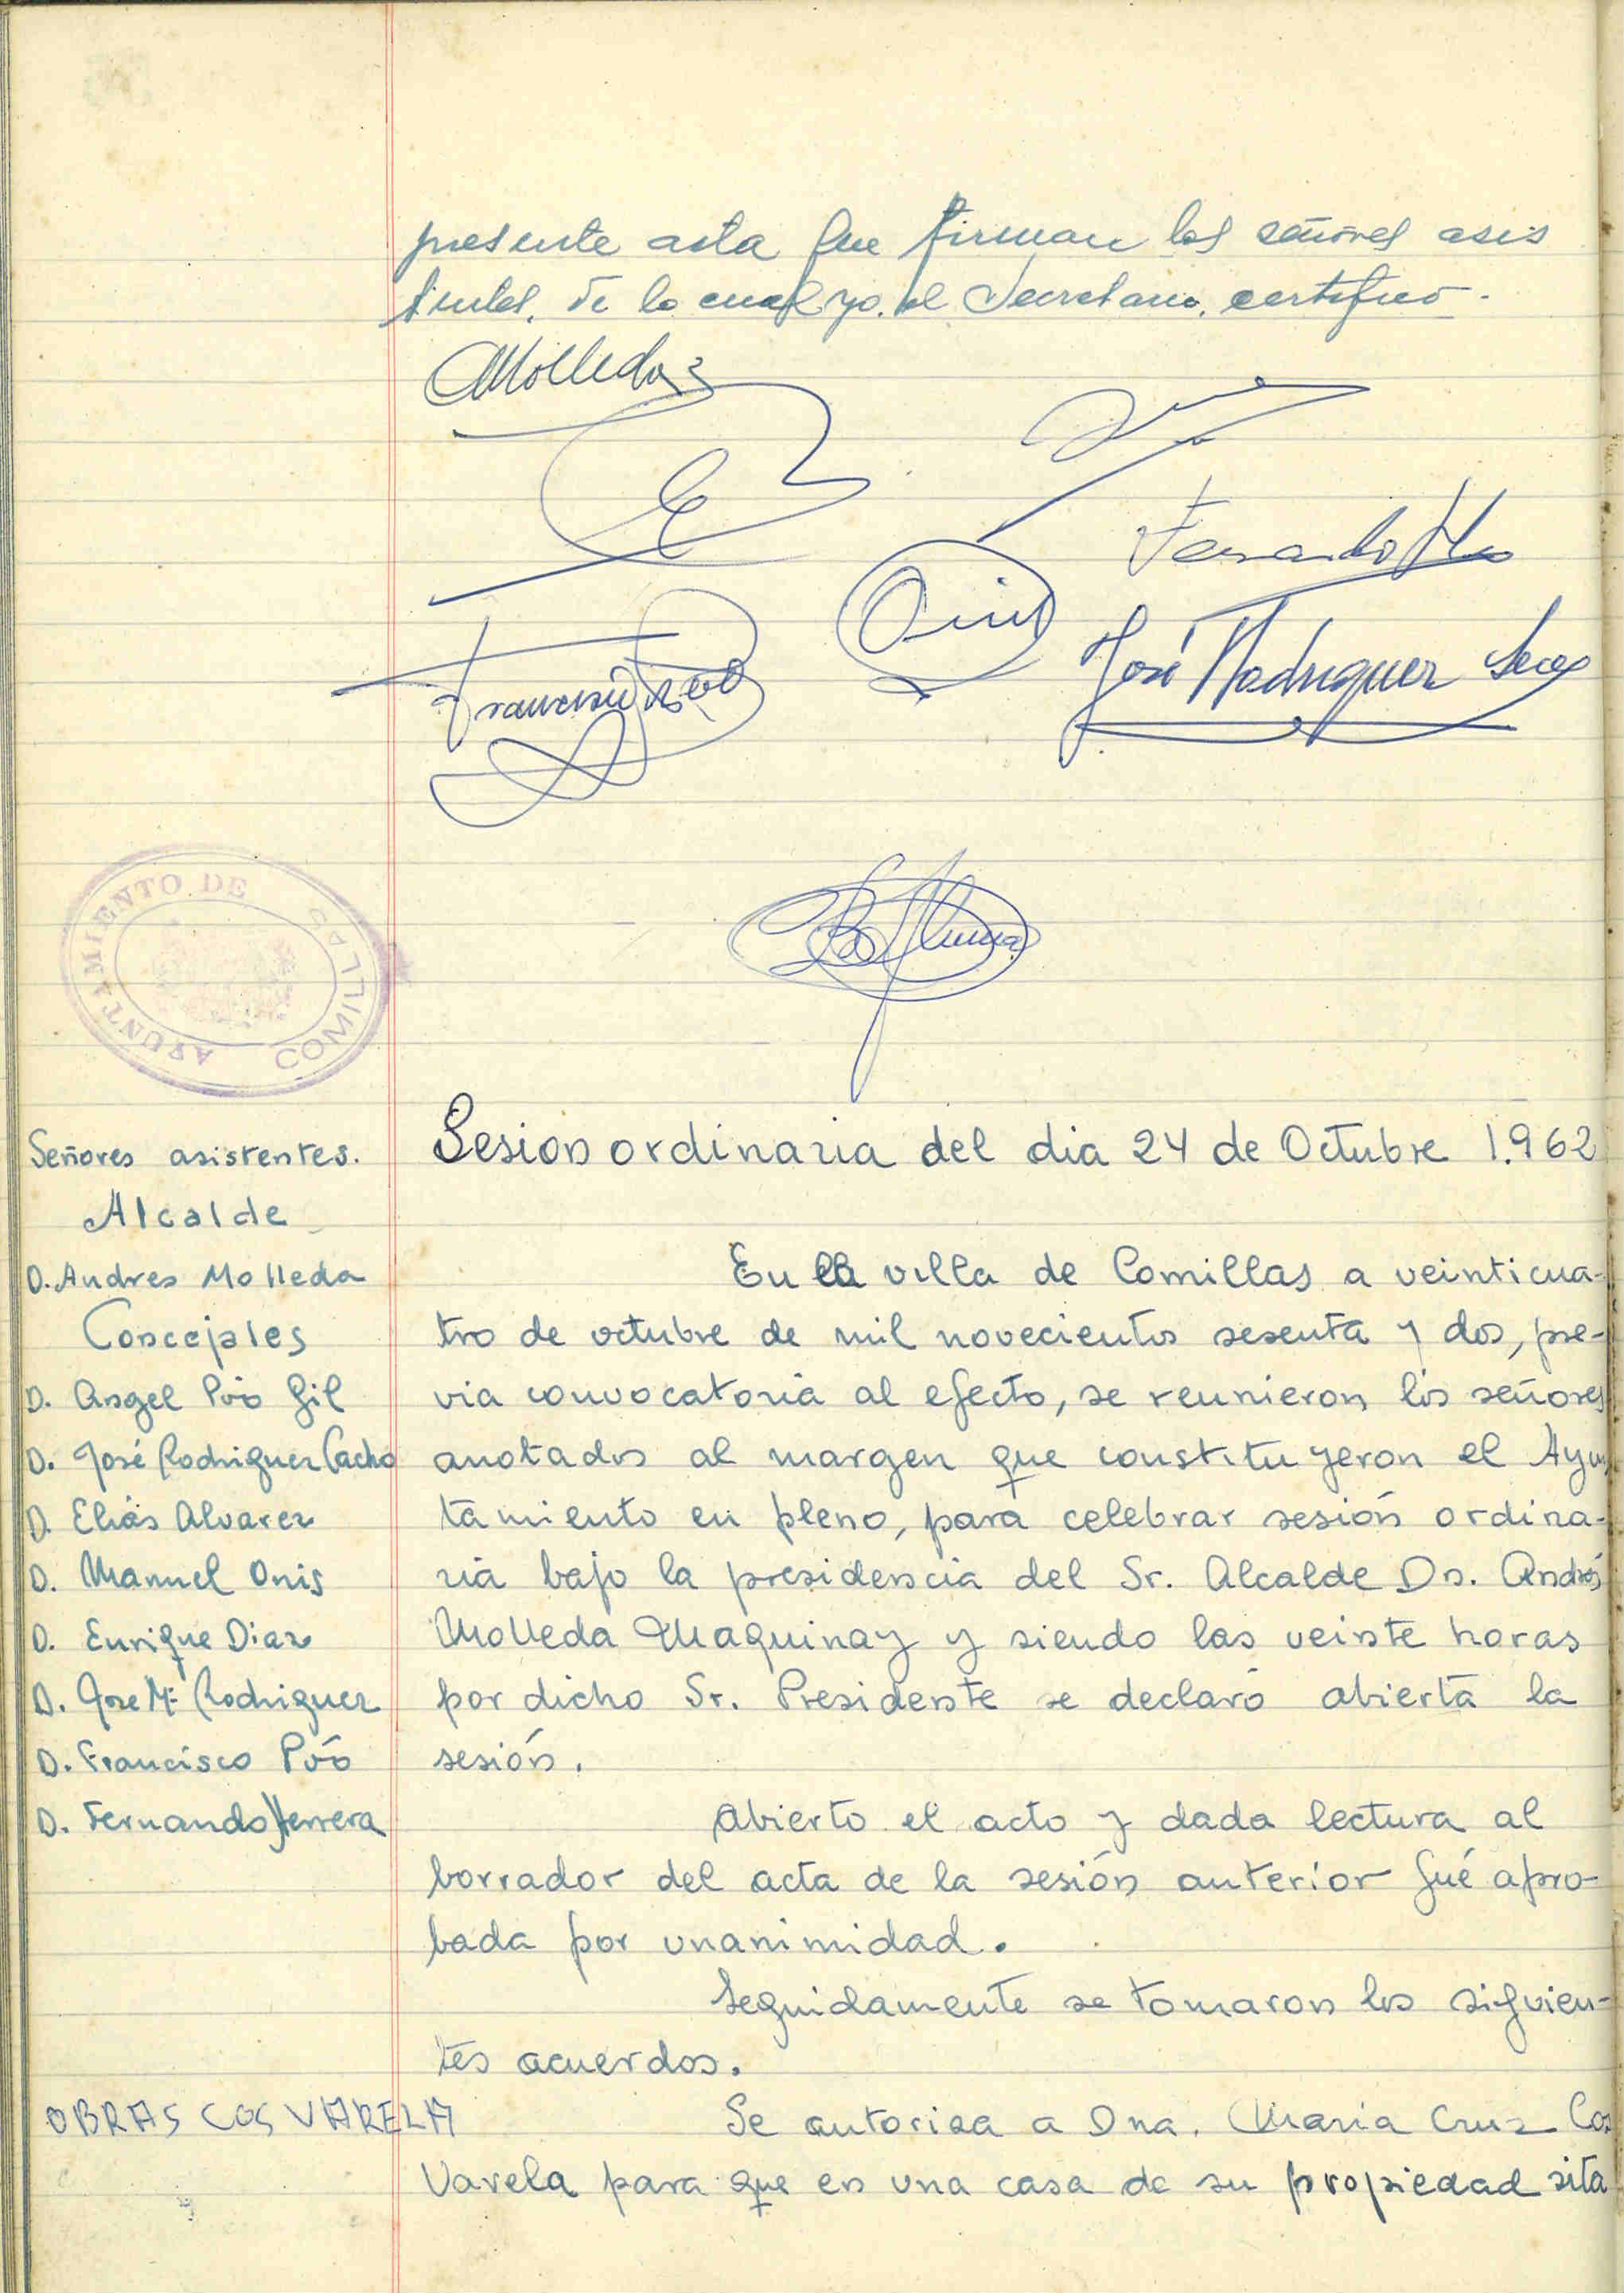 presente acta que firman los señores asis
tentes, de lo cual yo, el Secretario, certifico.
AMolleda
Fernando H
Onis
Francisco Poo
José Rodriguez
AYUNTAMIENTO DE COMILLAS
Sesion ordinaria del dia 24 de Octubre 1.962
Señores asistentes.
Alcalde
D. Andres Molleda
Concejales
D. Angel Póo Gil
D. José Rodriguez Cacho
D. Elias Alvarez
D. Manuel Onis
D. Enrique Diaz
D. Jose Mª Rodriguez
D. Francisco Póo
D. Fernando Herrera
En la villa de Comillas a veinticua-
tro de octubre de mil novecientos sesenta y dos, pre-
via convocatoria al efecto, se reunieron los señores
anotados al margen que constituyeron el Ayun
tamiento en pleno, para celebrar sesión ordina-
ria bajo la presidencia del Sr. Alcalde Dn. Andrés
Molleda Maquinay y siendo las veinte horas
por dicho Sr. Presidente se declaró abierta la
sesión.
Abierto el acto y dada lectura al
borrador del acta de la sesión anterior fué apro-
bada por unanimidad.
Seguidamente se tomaron los siguien-
tes acuerdos.
OBRAS COS VARELA
Se autoriza a Dna. Maria Cruz Cos
Varela para que en una casa de su propiedad sita